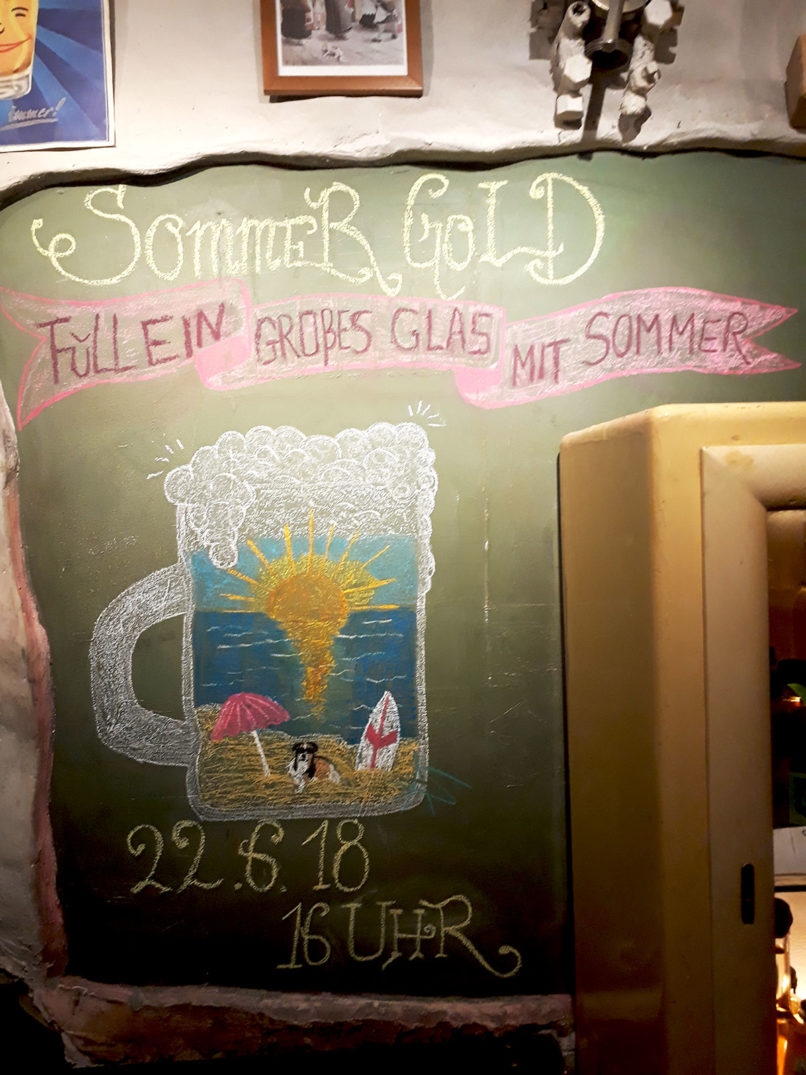 immer!
SommeR GoLD
FÜLL EIN GROßES GLAS MIT SOMMER
22.6.18
16 UHR